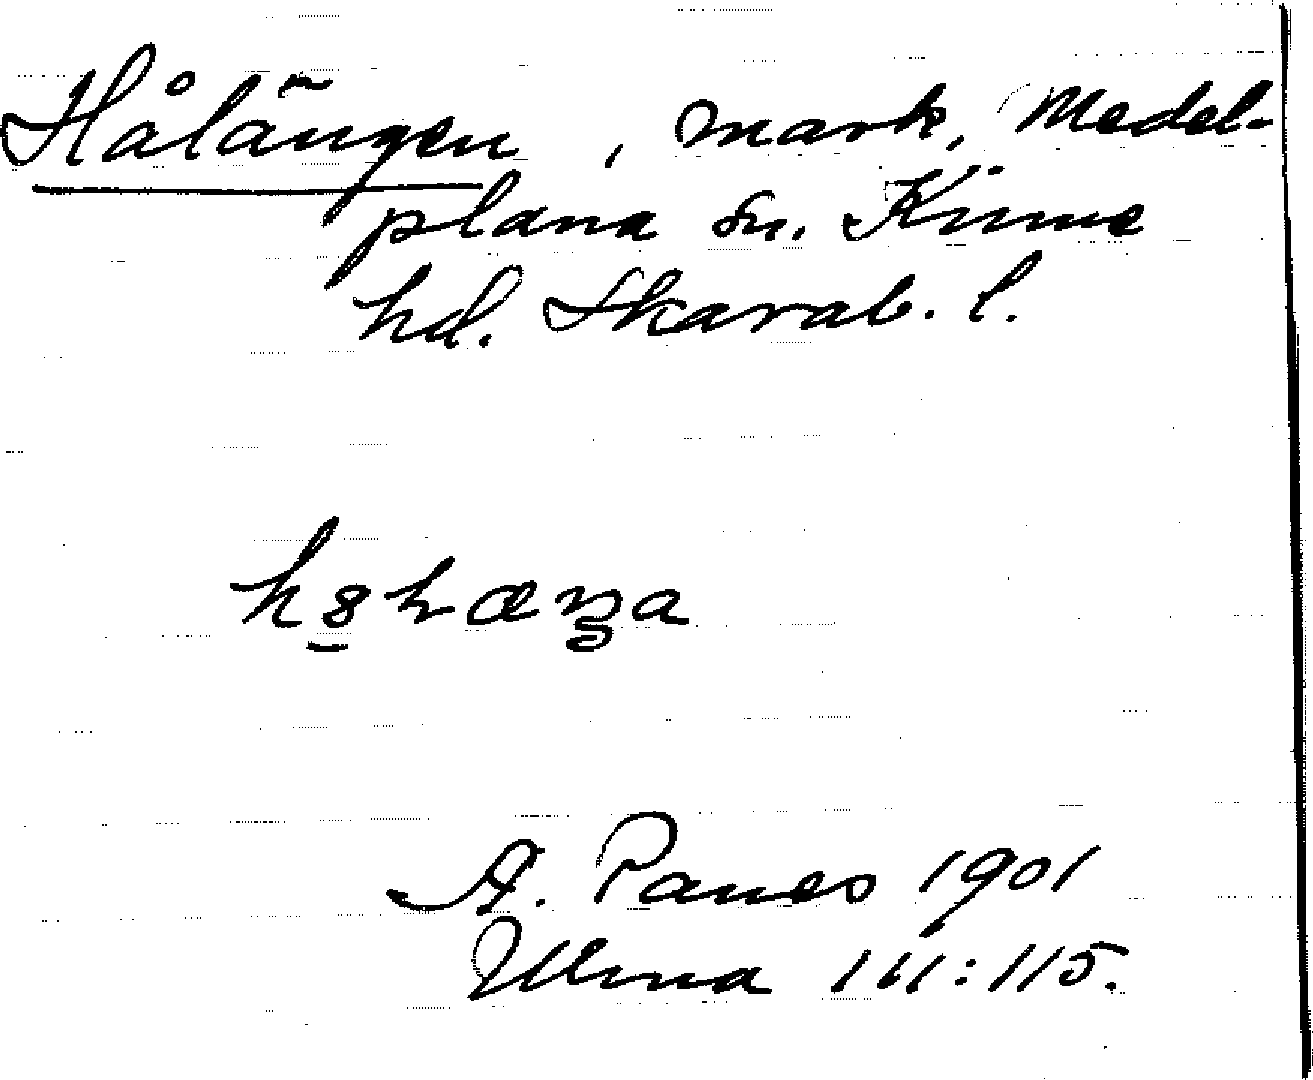 Hålängen, mark, Medel-
plana sn. Kinne
hd. Skarab. l.
A. Ranes 1901
Ulma 111:115.